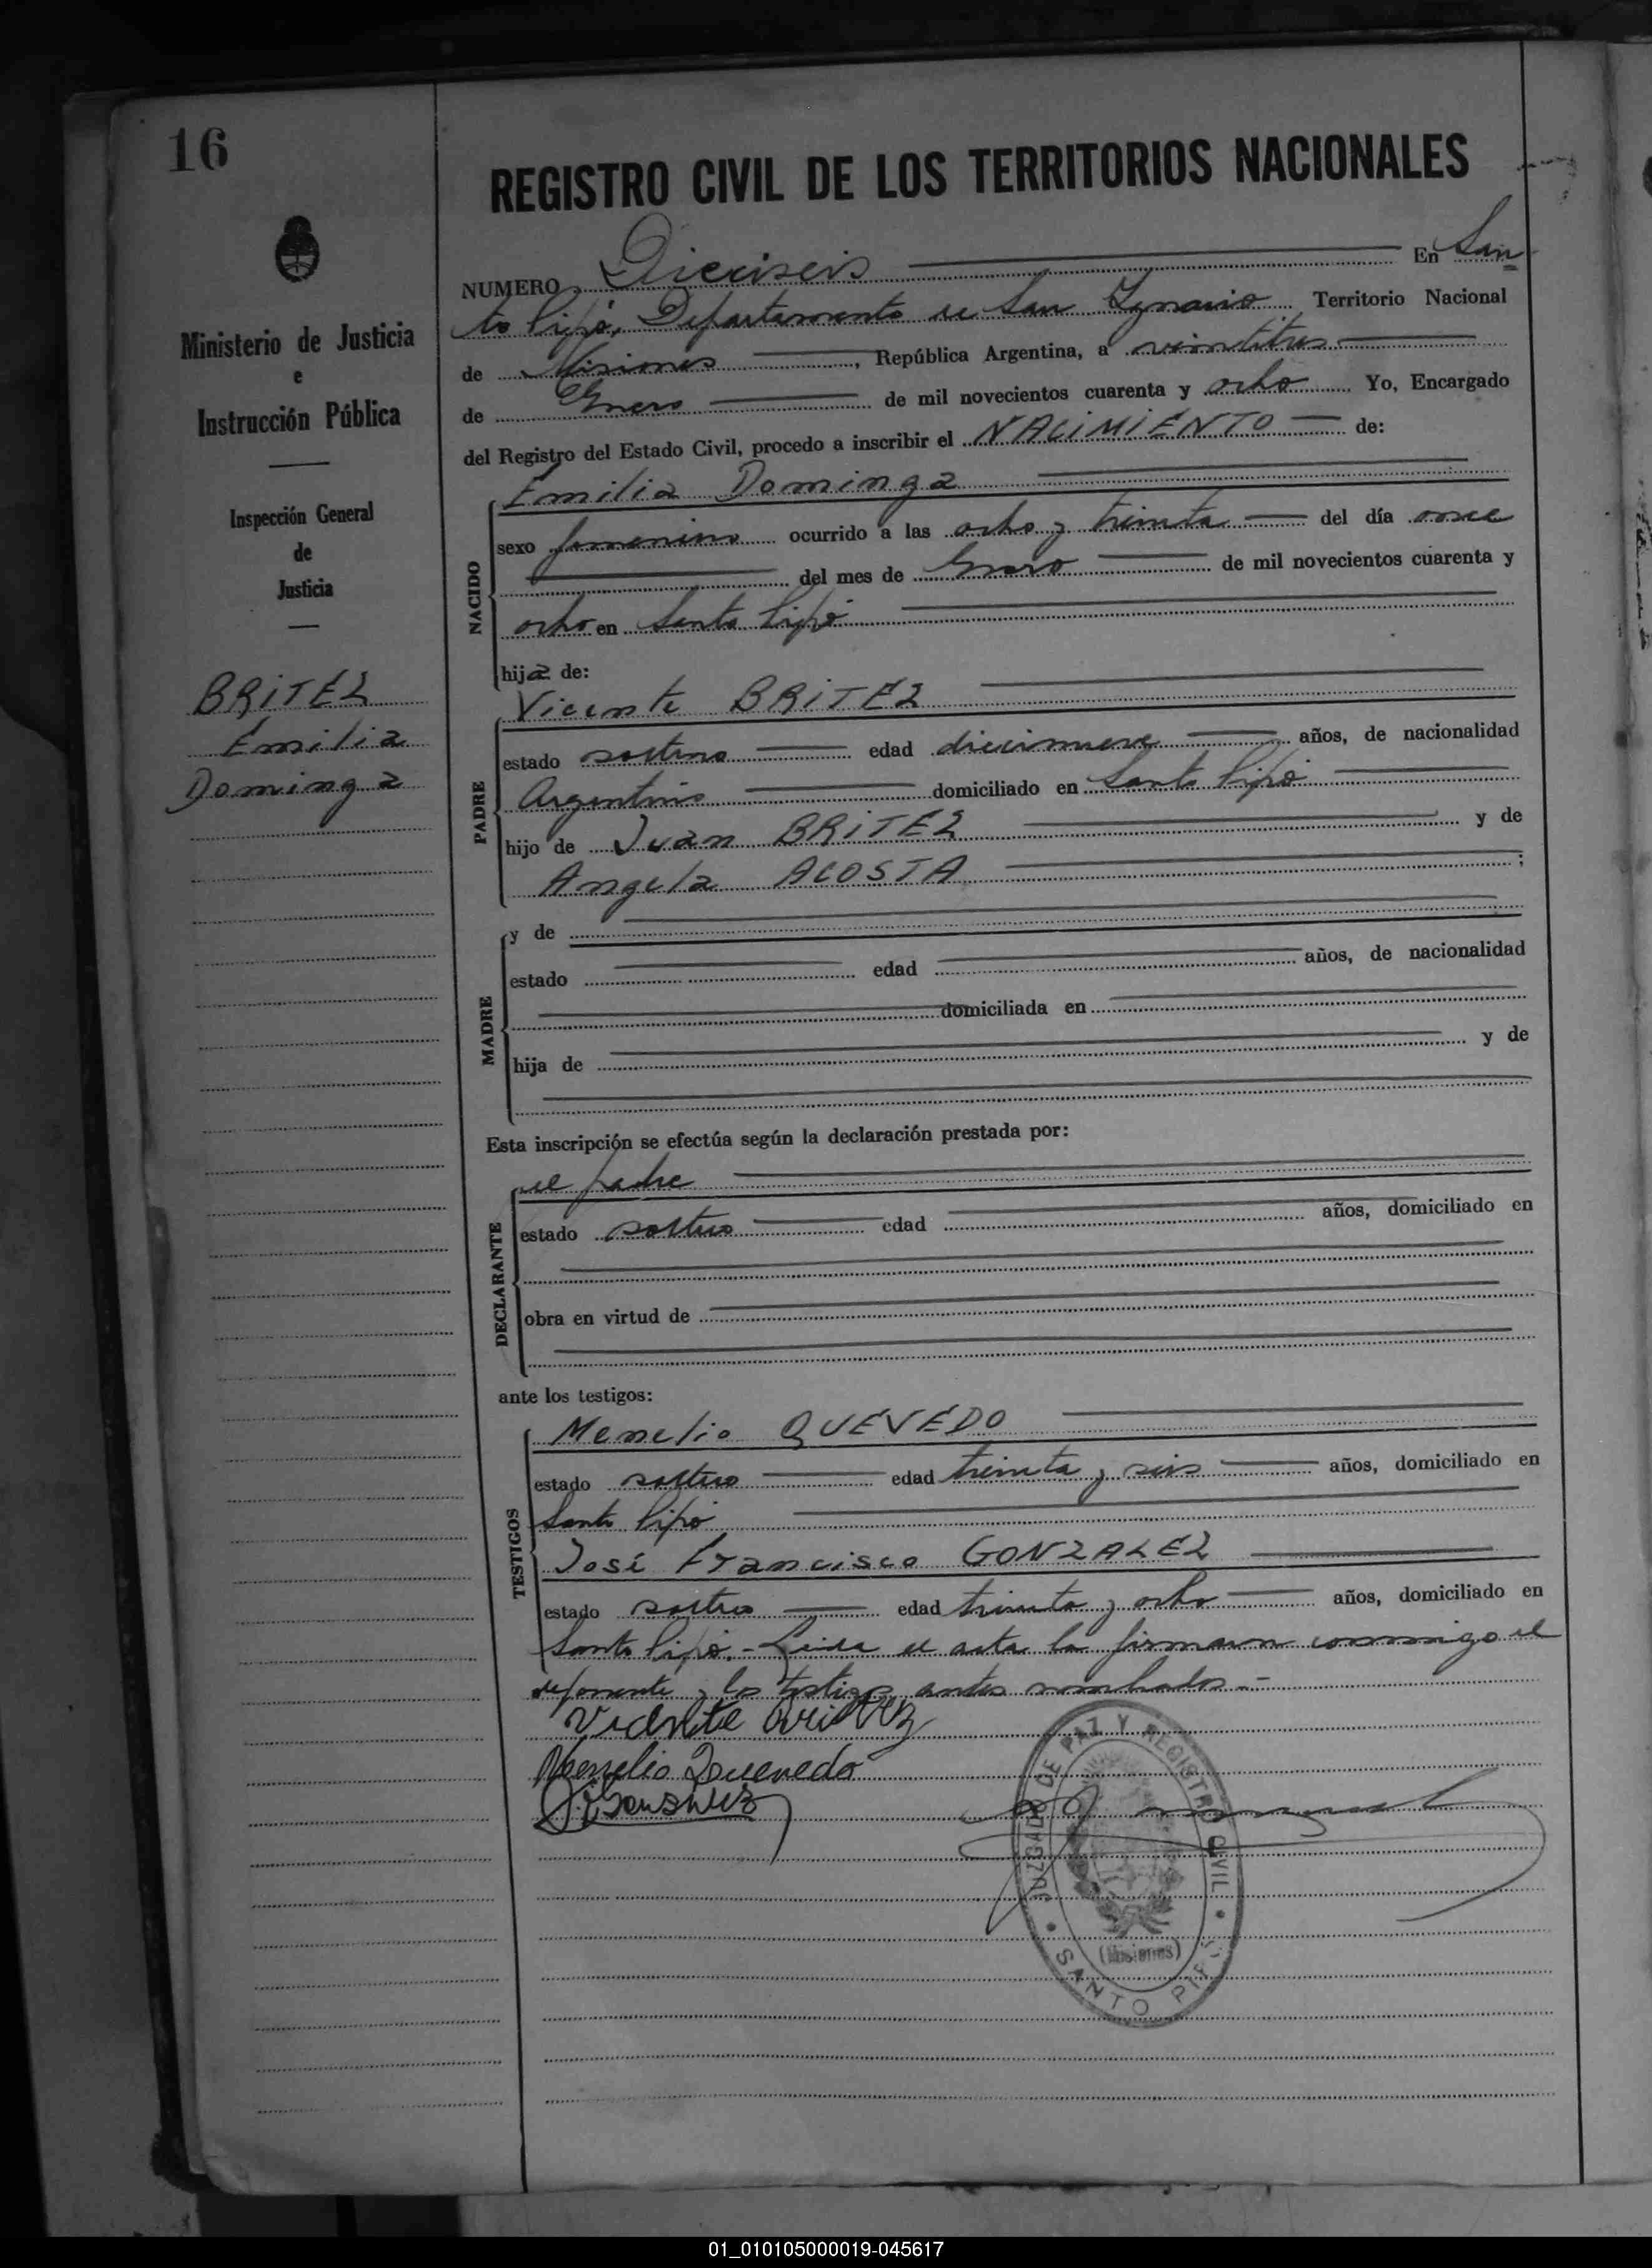 16
REGISTRO CIVIL DE LOS TERRITORIOS NACIONALES
Ministerio de Justicia
e
Instrucción Pública
Inspección General
de
Justicia
BRITEZ
Emilia
Dominga
NUMERO Dieciseis En San
to Pipó, Departamento de San Ygnacio Territorio Nacional
de Misiones, República Argentina, a veintitres
de Enero de mil novecientos cuarenta y ocho Yo, Encargado
del Registro del Estado Civil, procedo a inscribir el NACIMIENTO de:
NACIDO
Emilia Dominga
sexo femenino ocurrido a las ocho y treinta del día once
del mes de Enero de mil novecientos cuarenta y
ocho en Santo Pipó
hija de:
PADRE
Vicente BRITEZ
estado soltero edad diecinueve años, de nacionalidad
Argentino domiciliado en Santo Pipó
hijo de Juan BRITEZ y de
Angela ACOSTA ;
MADRE
y de
estado edad años, de nacionalidad
domiciliada en
hija de y de
Esta inscripción se efectúa según la declaración prestada por:
DECLARANTE
el padre
estado soltero edad años, domiciliado en
obra en virtud de
ante los testigos:
TESTIGOS
Menelio QUEVEDO
estado soltero edad treinta y seis años, domiciliado en
Santo Pipó
José Francisco GONZALEZ
estado soltero edad treinta y ocho años, domiciliado en
Santo Pipó.- Leida el acta la firmaron conmigo el
deponente y los testigos antes nombrados.-
Vicente Britez
Menelio Quevedo
JUZGADO DE PAZ Y REGISTRO CIVIL
(Misiones)
SANTO PIPÓ
01_010105000019-045617